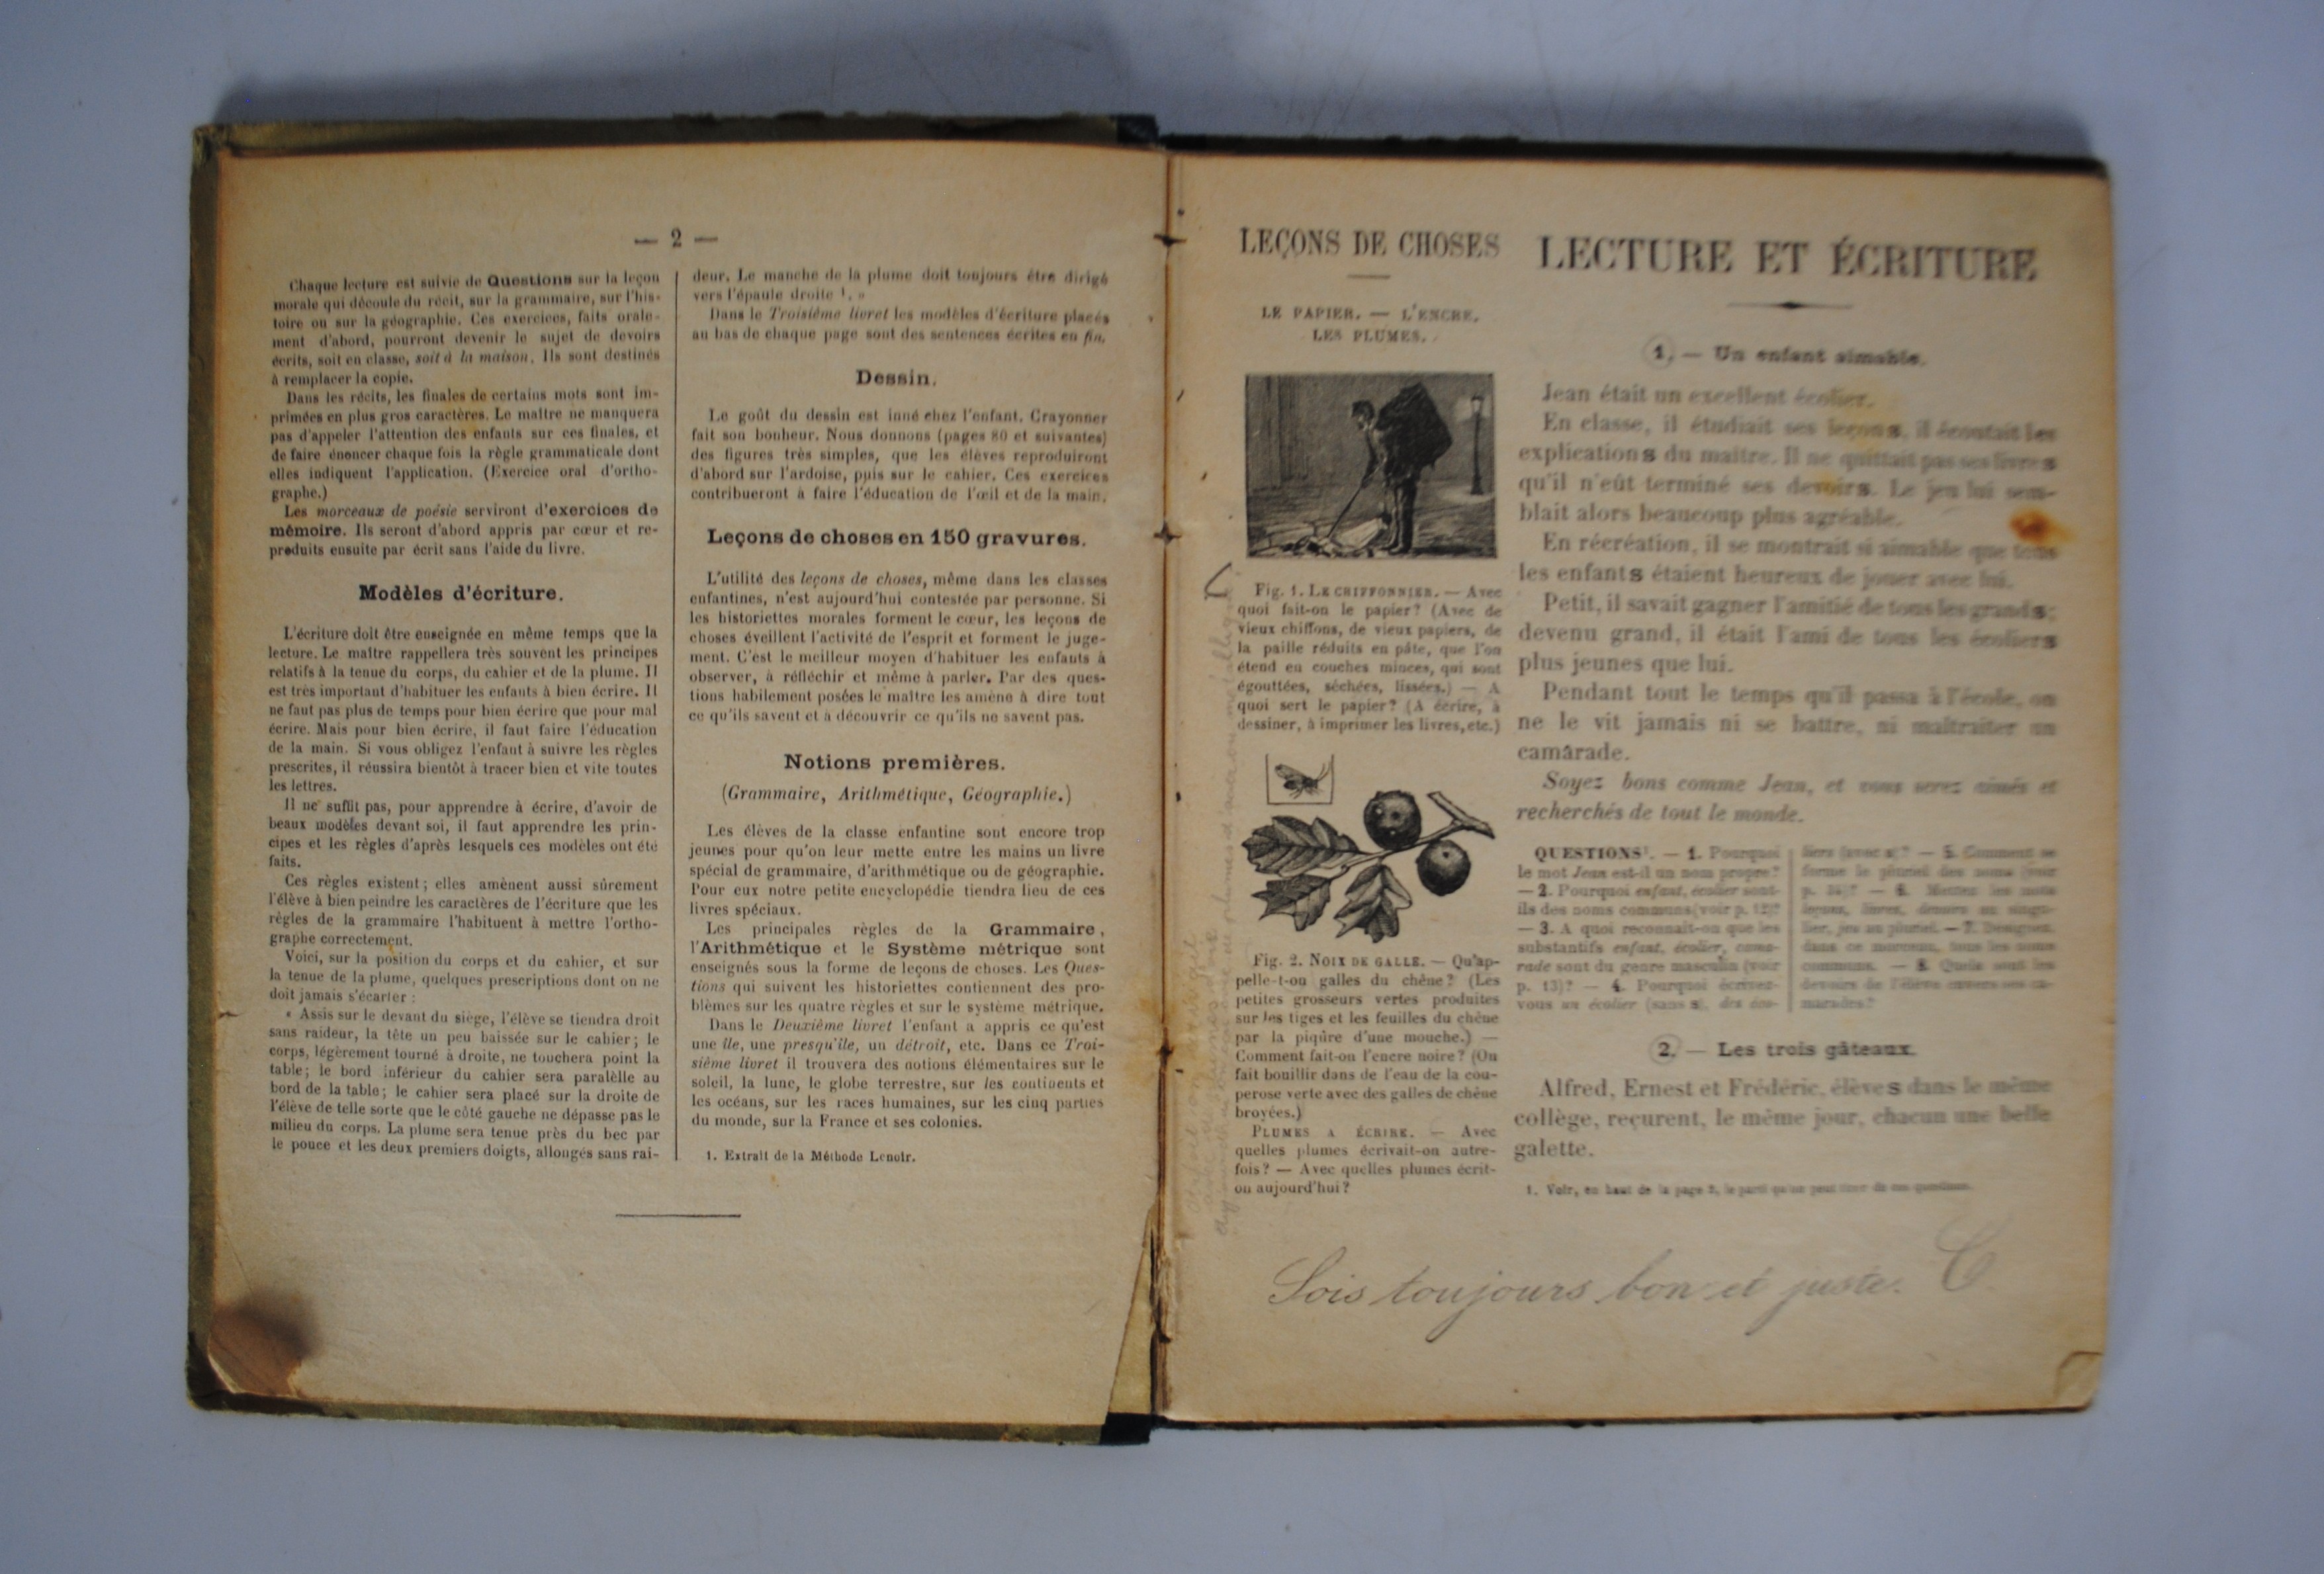 — 2 —
Chaque lecture est suivie de Questions sur la leçon
morale qui découle du récit, sur la grammaire, sur l'his-
toire ou sur la géographie. Ces exercices, faits orale-
ment d'abord, pourront devenir le sujet de devoirs
écrits, soit en classe, soit à la maison. Ils sont destinés
à remplacer la copie.
Dans les récits, les finales de certains mots sont im-
primées en plus gros caractères. Le maître ne manquera
pas d'appeler l'attention des enfants sur ces finales, et
de faire énoncer chaque fois la règle grammaticale dont
elles indiquent l'application. (Exercice oral d'ortho-
graphe.)
Les morceaux de poésie serviront d'exercices de
mémoire. Ils seront d'abord appris par cœur et re-
produits ensuite par écrit sans l'aide du livre.
Modèles d'écriture.
L'écriture doit être enseignée en même temps que la
lecture. Le maître rappellera très souvent les principes
relatifs à la tenue du corps, du cahier et de la plume. Il
est très important d'habituer les enfants à bien écrire. Il
ne faut pas plus de temps pour bien écrire que pour mal
écrire. Mais pour bien écrire, il faut faire l'éducation
de la main. Si vous obligez l'enfant à suivre les règles
prescrites, il réussira bientôt à tracer bien et vite toutes
les lettres.
Il ne suffit pas, pour apprendre à écrire, d'avoir de
beaux modèles devant soi, il faut apprendre les prin-
cipes et les règles d'après lesquels ces modèles ont été
faits.
Ces règles existent ; elles amènent aussi sûrement
l'élève à bien peindre les caractères de l'écriture que les
règles de la grammaire l'habituent à mettre l'ortho-
graphe correctement.
Voici, sur la position du corps et du cahier, et sur
la tenue de la plume, quelques prescriptions dont on ne
doit jamais s'écarter :
« Assis sur le devant du siège, l'élève se tiendra droit
sans raideur, la tête un peu baissée sur le cahier ; le
corps, légèrement tourné à droite, ne touchera point la
table ; le bord inférieur du cahier sera paralèlle au
bord de la table ; le cahier sera placé sur la droite de
l'élève de telle sorte que le côté gauche ne dépasse pas le
milieu du corps. La plume sera tenue près du bec par
le pouce et les deux premiers doigts, allongés sans rai-
deur. Le manche de la plume doit toujours être dirigé
vers l'épaule droite 1. »
Dans le Troisième livret les modèles d'écriture placés
au bas de chaque page sont des sentences écrites en fin.
Dessin.
Le goût du dessin est inné chez l'enfant. Crayonner
fait son bonheur. Nous donnons (pages 80 et suivantes)
des figures très simples, que les élèves reproduiront
d'abord sur l'ardoise, puis sur le cahier. Ces exercices
contribueront à faire l'éducation de l'œil et de la main.
Leçons de choses en 150 gravures.
L'utilité des leçons de choses, même dans les classes
enfantines, n'est aujourd'hui contestée par personne. Si
les historiettes morales forment le cœur, les leçons de
choses éveillent l'activité de l'esprit et forment le juge-
ment. C'est le meilleur moyen d'habituer les enfants à
observer, à réfléchir et même à parler. Par des ques-
tions habilement posées le maître les amène à dire tout
ce qu'ils savent et à découvrir ce qu'ils ne savent pas.
Notions premières.
(Grammaire, Arithmétique, Géographie.)
Les élèves de la classe enfantine sont encore trop
jeunes pour qu'on leur mette entre les mains un livre
spécial de grammaire, d'arithmétique ou de géographie.
Pour eux notre petite encyclopédie tiendra lieu de ces
livres spéciaux.
Les principales règles de la Grammaire,
l'Arithmétique et le Système métrique sont
enseignés sous la forme de leçons de choses. Les Ques-
tions qui suivent les historiettes contiennent des pro-
blèmes sur les quatre règles et sur le système métrique.
Dans le Deuxième livret l'enfant a appris ce qu'est
une île, une presqu'île, un détroit, etc. Dans ce Troi-
sième livret il trouvera des notions élémentaires sur le
soleil, la lune, le globe terrestre, sur les continents et
les océans, sur les races humaines, sur les cinq parties
du monde, sur la France et ses colonies.
1. Extrait de la Méthode Lenoir.
LEÇONS DE CHOSES
LE PAPIER. — L'ENCRE.
LES PLUMES.
Fig. 1. LE CHIFFONNIER. — Avec
quoi fait-on le papier? (Avec de
vieux chiffons, de vieux papiers, de
la paille réduits en pâte, que l'on
étend en couches minces, qui sont
égouttées, séchées, lissées.) — A
quoi sert le papier? (A écrire, à
dessiner, à imprimer les livres, etc.)
Fig. 2. NOIX DE GALLE. — Qu'ap-
pelle-t-on galles du chêne? (Les
petites grosseurs vertes produites
sur les tiges et les feuilles du chêne
par la piqûre d'une mouche.) —
Comment fait-on l'encre noire? (On
fait bouillir dans de l'eau de la cou-
perose verte avec des galles de chêne
broyées.)
PLUMES A ÉCRIRE. — Avec
quelles plumes écrivait-on autre-
fois? — Avec quelles plumes écrit-
on aujourd'hui?
LECTURE ET ÉCRITURE
1. — Un enfant aimable.
Jean était un excellent écolier.
En classe, il étudiait ses leçons, il écoutait les
explications du maître. Il ne quittait pas ses livres
qu'il n'eût terminé ses devoirs. Le jeu lui sem-
blait alors beaucoup plus agréable.
En récréation, il se montrait si aimable que tous
les enfants étaient heureux de jouer avec lui.
Petit, il savait gagner l'amitié de tous les grands;
devenu grand, il était l'ami de tous les écoliers
plus jeunes que lui.
Pendant tout le temps qu'il passa à l'école, on
ne le vit jamais ni se battre, ni maltraiter un
camarade.
Soyez bons comme Jean, et vous serez aimés et
recherchés de tout le monde.
QUESTIONS1. — 1. Pourquoi
le mot Jean est-il un nom propre?
— 2. Pourquoi enfant, écolier sont-
ils des noms communs (voir p. 12)?
— 3. A quoi reconnaît-on que les
substantifs enfant, écolier, cama-
rade sont du genre masculin (voir
p. 13)? — 4. Pourquoi écrivez-
vous un écolier (sans s), des éco-
liers (avec s)? — 5. Comment se
forme le pluriel des noms (voir
p. 14)? — 6. Mettez les mots
leçons, livres, devoirs au singu-
lier, jeu au pluriel. — 7. Désignez,
dans ce morceau, tous les noms
communs. — 8. Quels sont les
devoirs de l'élève envers ses ca-
marades?
2. — Les trois gâteaux.
Alfred, Ernest et Frédéric, élèves dans le même
collège, reçurent, le même jour, chacun une belle
galette.
1. Voir, en haut de la page 2, le parti qu'on peut tirer de ces questions.
Sois toujours bon et juste. C